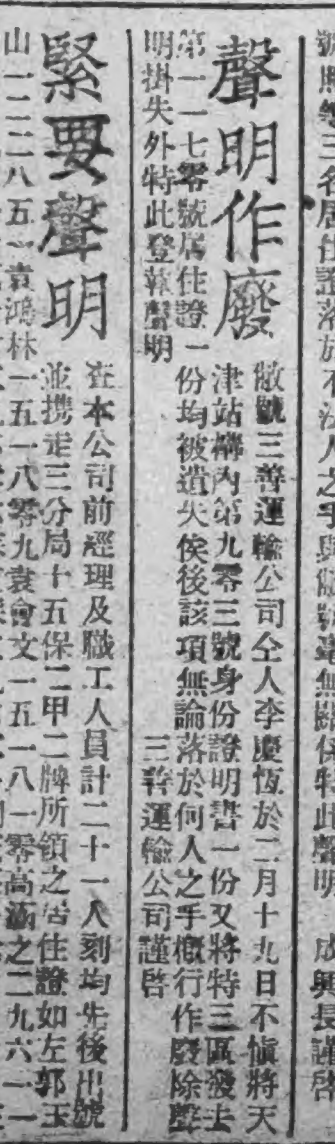 號照等三名居住證落於不法人之手與敝號毫無關係特此聲明 成興長謹啓
聲明作廢
敝號三善運輸公司仝人李慶恆於二月十九日不慎將天
津站構內第九零三號身份證明書一份又將特三區發去
第一一七零號居住證一份均被遺失俟後該項無論落於何人之手概行作廢除聲
明掛失外特此登報聲明 三善運輸公司謹啓
緊要聲明
查本公司前經理及職工人員計二十一人刻均先後出號
並携走三分局十五保二甲二牌所領之居住證如左郭玉
山一二二八五一袁鴻林一五一八零九袁會文一五一八一零高涵之二九六一一